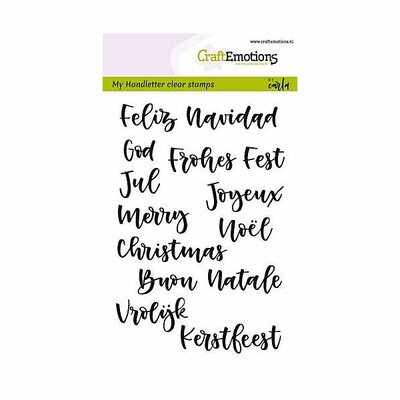 www.craftemotions.nl
CraftEmotions
My Handletter clear stamps
BY
carla
Feliz Navidad
God
Frohes Fest
Jul
Joyeux
Merry
Noël
Christmas
Buon Natale
Vrolijk
Kerstfeest